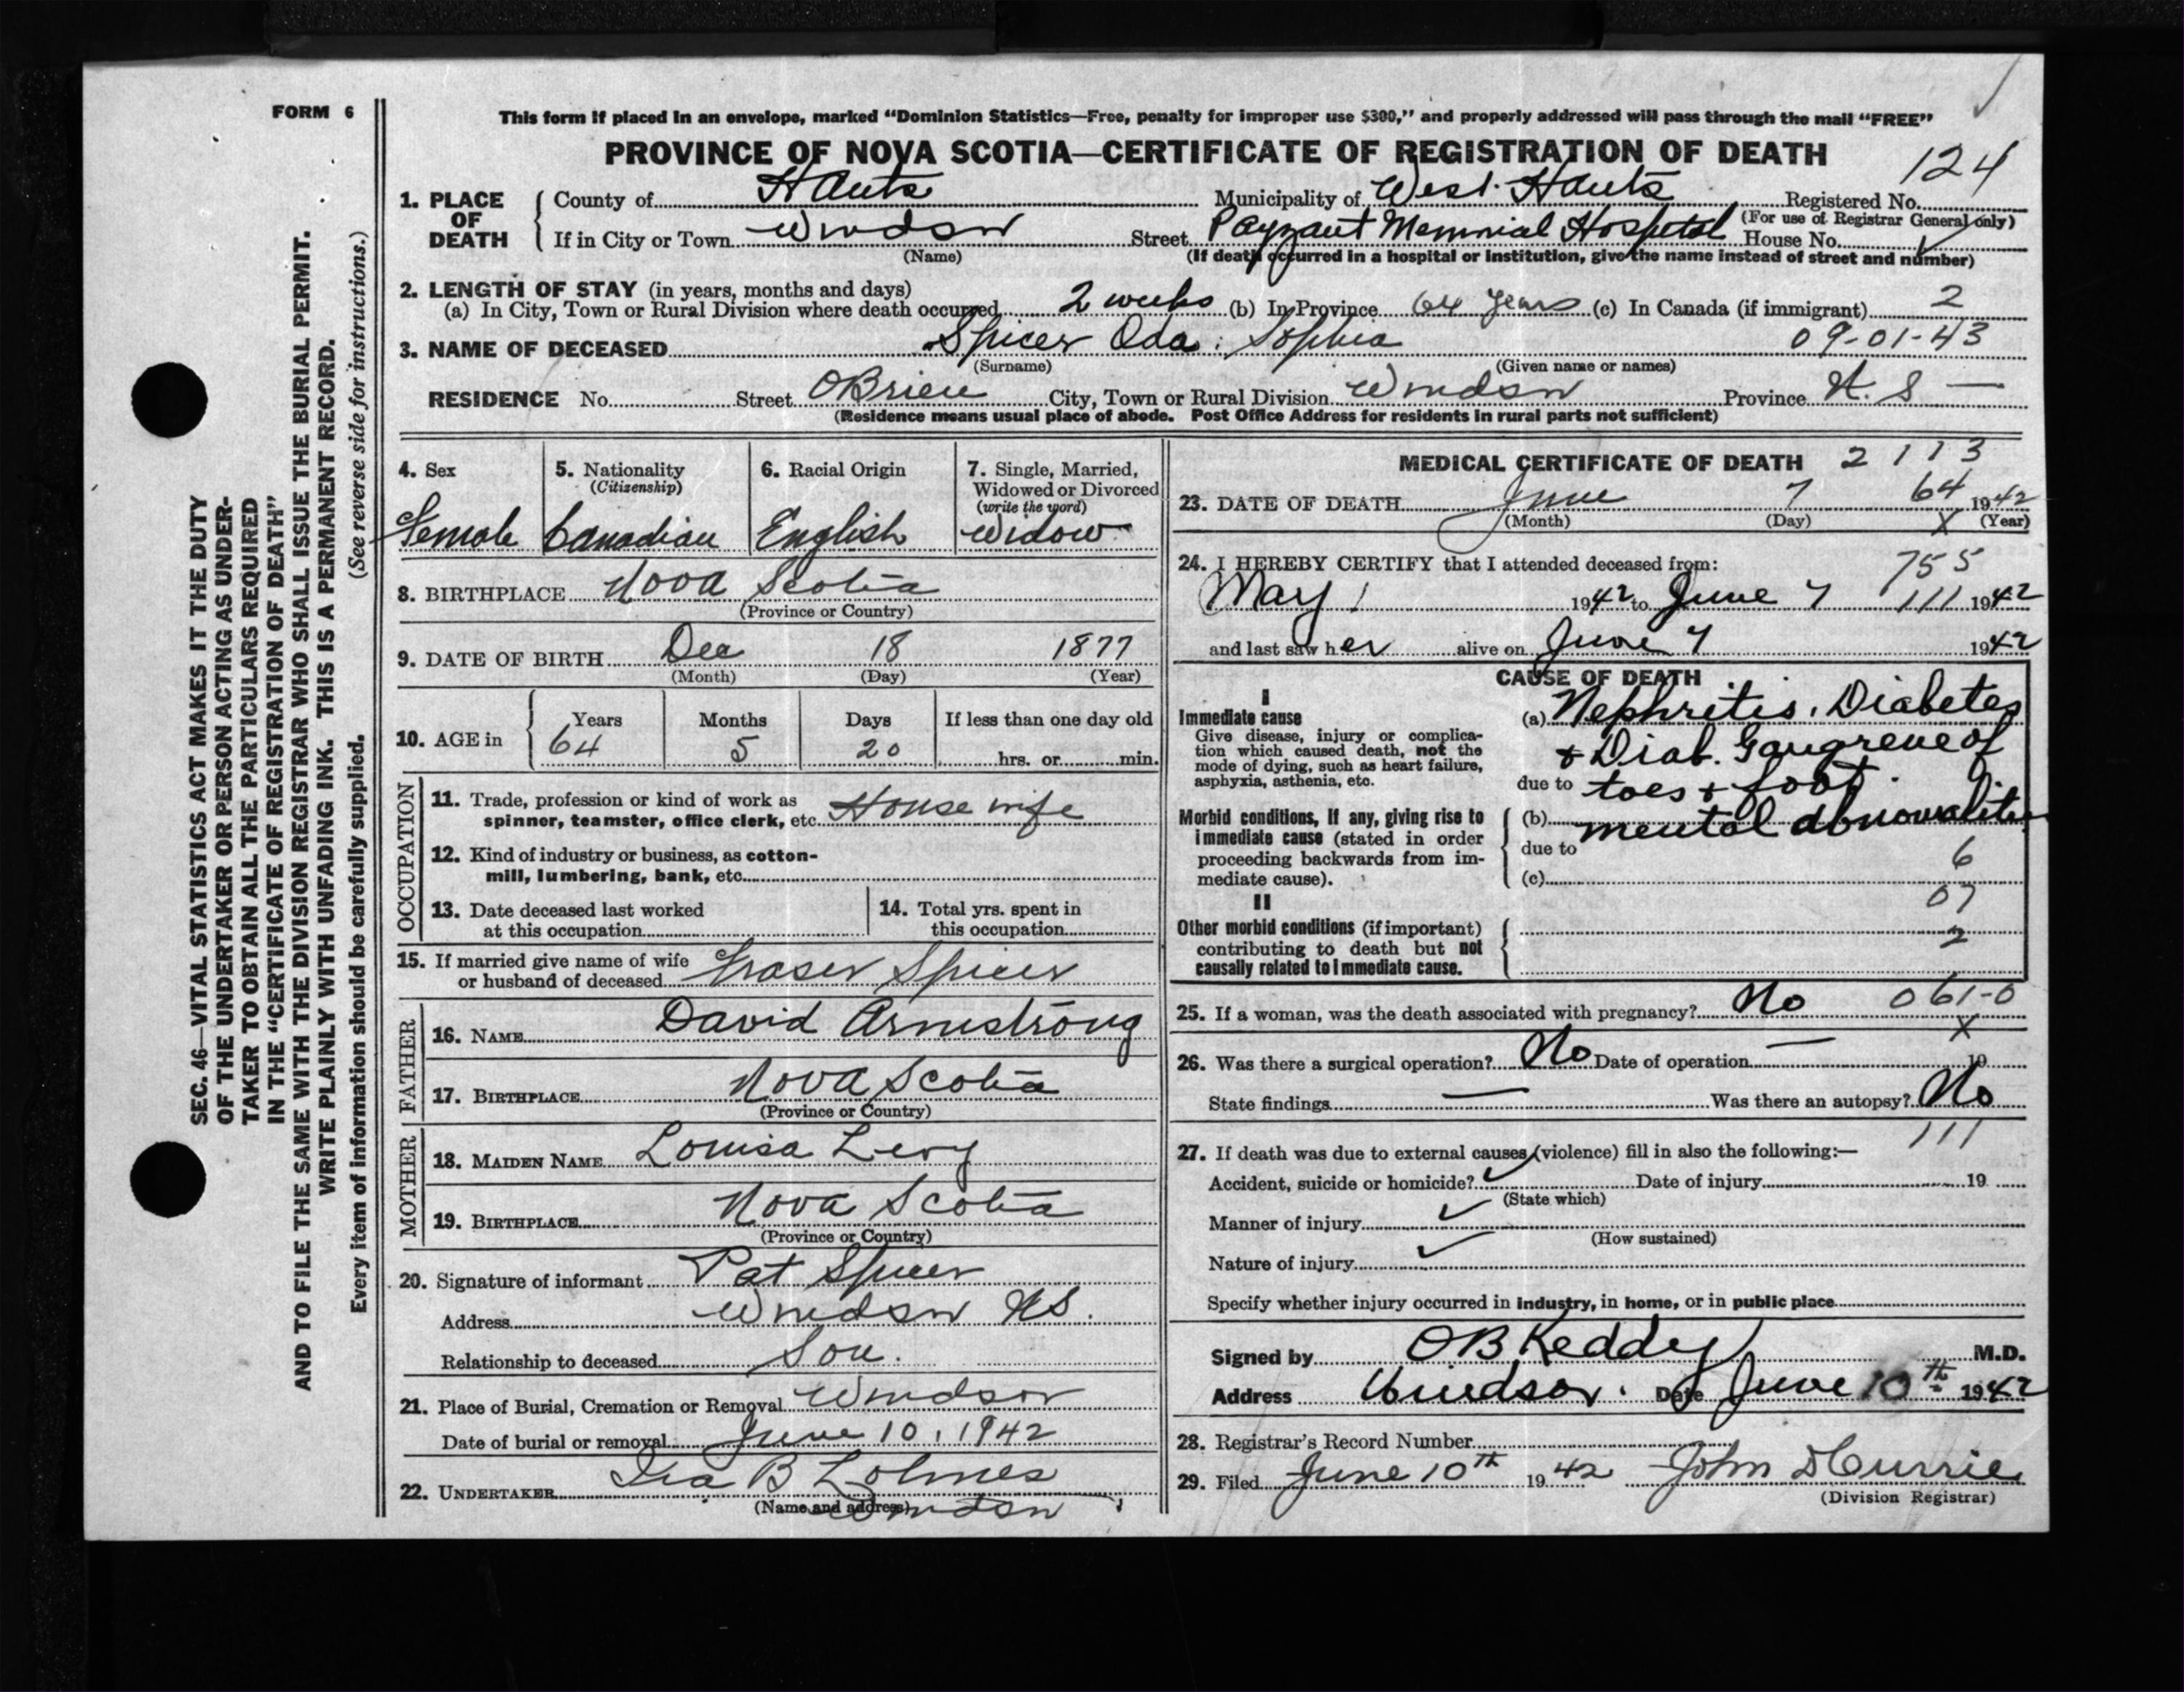 FORM 6
This form if placed in an envelope, marked “Dominion Statistics—Free, penalty for improper use $300,” and properly addressed will pass through the mail “FREE”
PROVINCE OF NOVA SCOTIA—CERTIFICATE OF REGISTRATION OF DEATH
124
1. PLACE OF DEATH
County of Hants Municipality of West Hants Registered No.
(For use of Registrar General only)
If in City or Town Windsor Street Payzant Memorial Hospital House No.
(Name) (If death occurred in a hospital or institution, give the name instead of street and number)
2. LENGTH OF STAY (in years, months and days)
(a) In City, Town or Rural Division where death occurred 2 weeks (b) In Province 64 years (c) In Canada (if immigrant) 2
3. NAME OF DECEASED Spicer Oda Sophia 09-01-43
(Surname) (Given name or names)
RESIDENCE No. Street OBrien City, Town or Rural Division Windsor Province N. S —
(Residence means usual place of abode. Post Office Address for residents in rural parts not sufficient)
4. Sex
Female
5. Nationality
(Citizenship)
Canadian
6. Racial Origin
English
7. Single, Married,
Widowed or Divorced
(write the word)
Widow
8. BIRTHPLACE Nova Scotia
(Province or Country)
9. DATE OF BIRTH Dec 18 1877
(Month) (Day) (Year)
10. AGE in
Years Months Days If less than one day old
64 5 20 hrs. or min.
OCCUPATION
11. Trade, profession or kind of work as House wife
spinner, teamster, office clerk, etc.
12. Kind of industry or business, as cotton-
mill, lumbering, bank, etc.
13. Date deceased last worked
at this occupation
14. Total yrs. spent in
this occupation
15. If married give name of wife
or husband of deceased Fraser Spicer
FATHER
16. NAME David Armstrong
17. BIRTHPLACE Nova Scotia
(Province or Country)
MOTHER
18. MAIDEN NAME Louisa Levy
19. BIRTHPLACE Nova Scotia
(Province or Country)
20. Signature of informant Pat Spicer
Address Windsor NS.
Relationship to deceased Son.
21. Place of Burial, Cremation or Removal Windsor
Date of burial or removal June 10, 1942
22. UNDERTAKER Ira B Lohnes
(Name and address) Windsor
MEDICAL CERTIFICATE OF DEATH 2113
64
23. DATE OF DEATH June 7 1942
(Month) (Day) X (Year)
24. I HEREBY CERTIFY that I attended deceased from: 755
May 1 1942 to June 7 111 1942
and last saw her alive on June 7 1942
CAUSE OF DEATH
I
Immediate cause
Give disease, injury or complica-
tion which caused death, not the
mode of dying, such as heart failure,
asphyxia, asthenia, etc.
(a) Nephritis. Diabetes
& Diab. Gangrene of
due to toes & foot.
Morbid conditions, if any, giving rise to
immediate cause (stated in order
proceeding backwards from im-
mediate cause).
(b) mental
due to
6
(c)
07
II
Other morbid conditions (if important)
contributing to death but not
causally related to immediate cause.
2
061-0
25. If a woman, was the death associated with pregnancy? No
X
26. Was there a surgical operation? No Date of operation — 19
State findings — Was there an autopsy? No
111
27. If death was due to external causes (violence) fill in also the following:—
Accident, suicide or homicide? Date of injury 19
(State which)
Manner of injury
(How sustained)
Nature of injury
Specify whether injury occurred in industry, in home, or in public place
Signed by OB Keddy M.D.
Address Windsor. Date June 10th 1942
28. Registrar's Record Number
29. Filed June 10th 1942 John D Currie
(Division Registrar)
SEC. 46—VITAL STATISTICS ACT MAKES IT THE DUTY
OF THE UNDERTAKER OR PERSON ACTING AS UNDER-
TAKER TO OBTAIN ALL THE PARTICULARS REQUIRED
IN THE “CERTIFICATE OF REGISTRATION OF DEATH”
AND TO FILE THE SAME WITH THE DIVISION REGISTRAR WHO SHALL ISSUE THE BURIAL PERMIT.
WRITE PLAINLY WITH UNFADING INK. THIS IS A PERMANENT RECORD.
Every item of information should be carefully supplied. (See reverse side for instructions.)